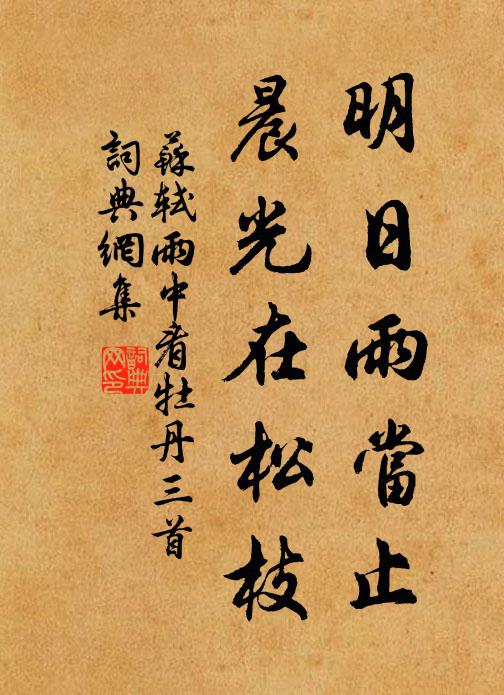 明日雨當止
晨光在松枝
蘇軾雨中看牡丹三首
詞典網集
詞典
网印